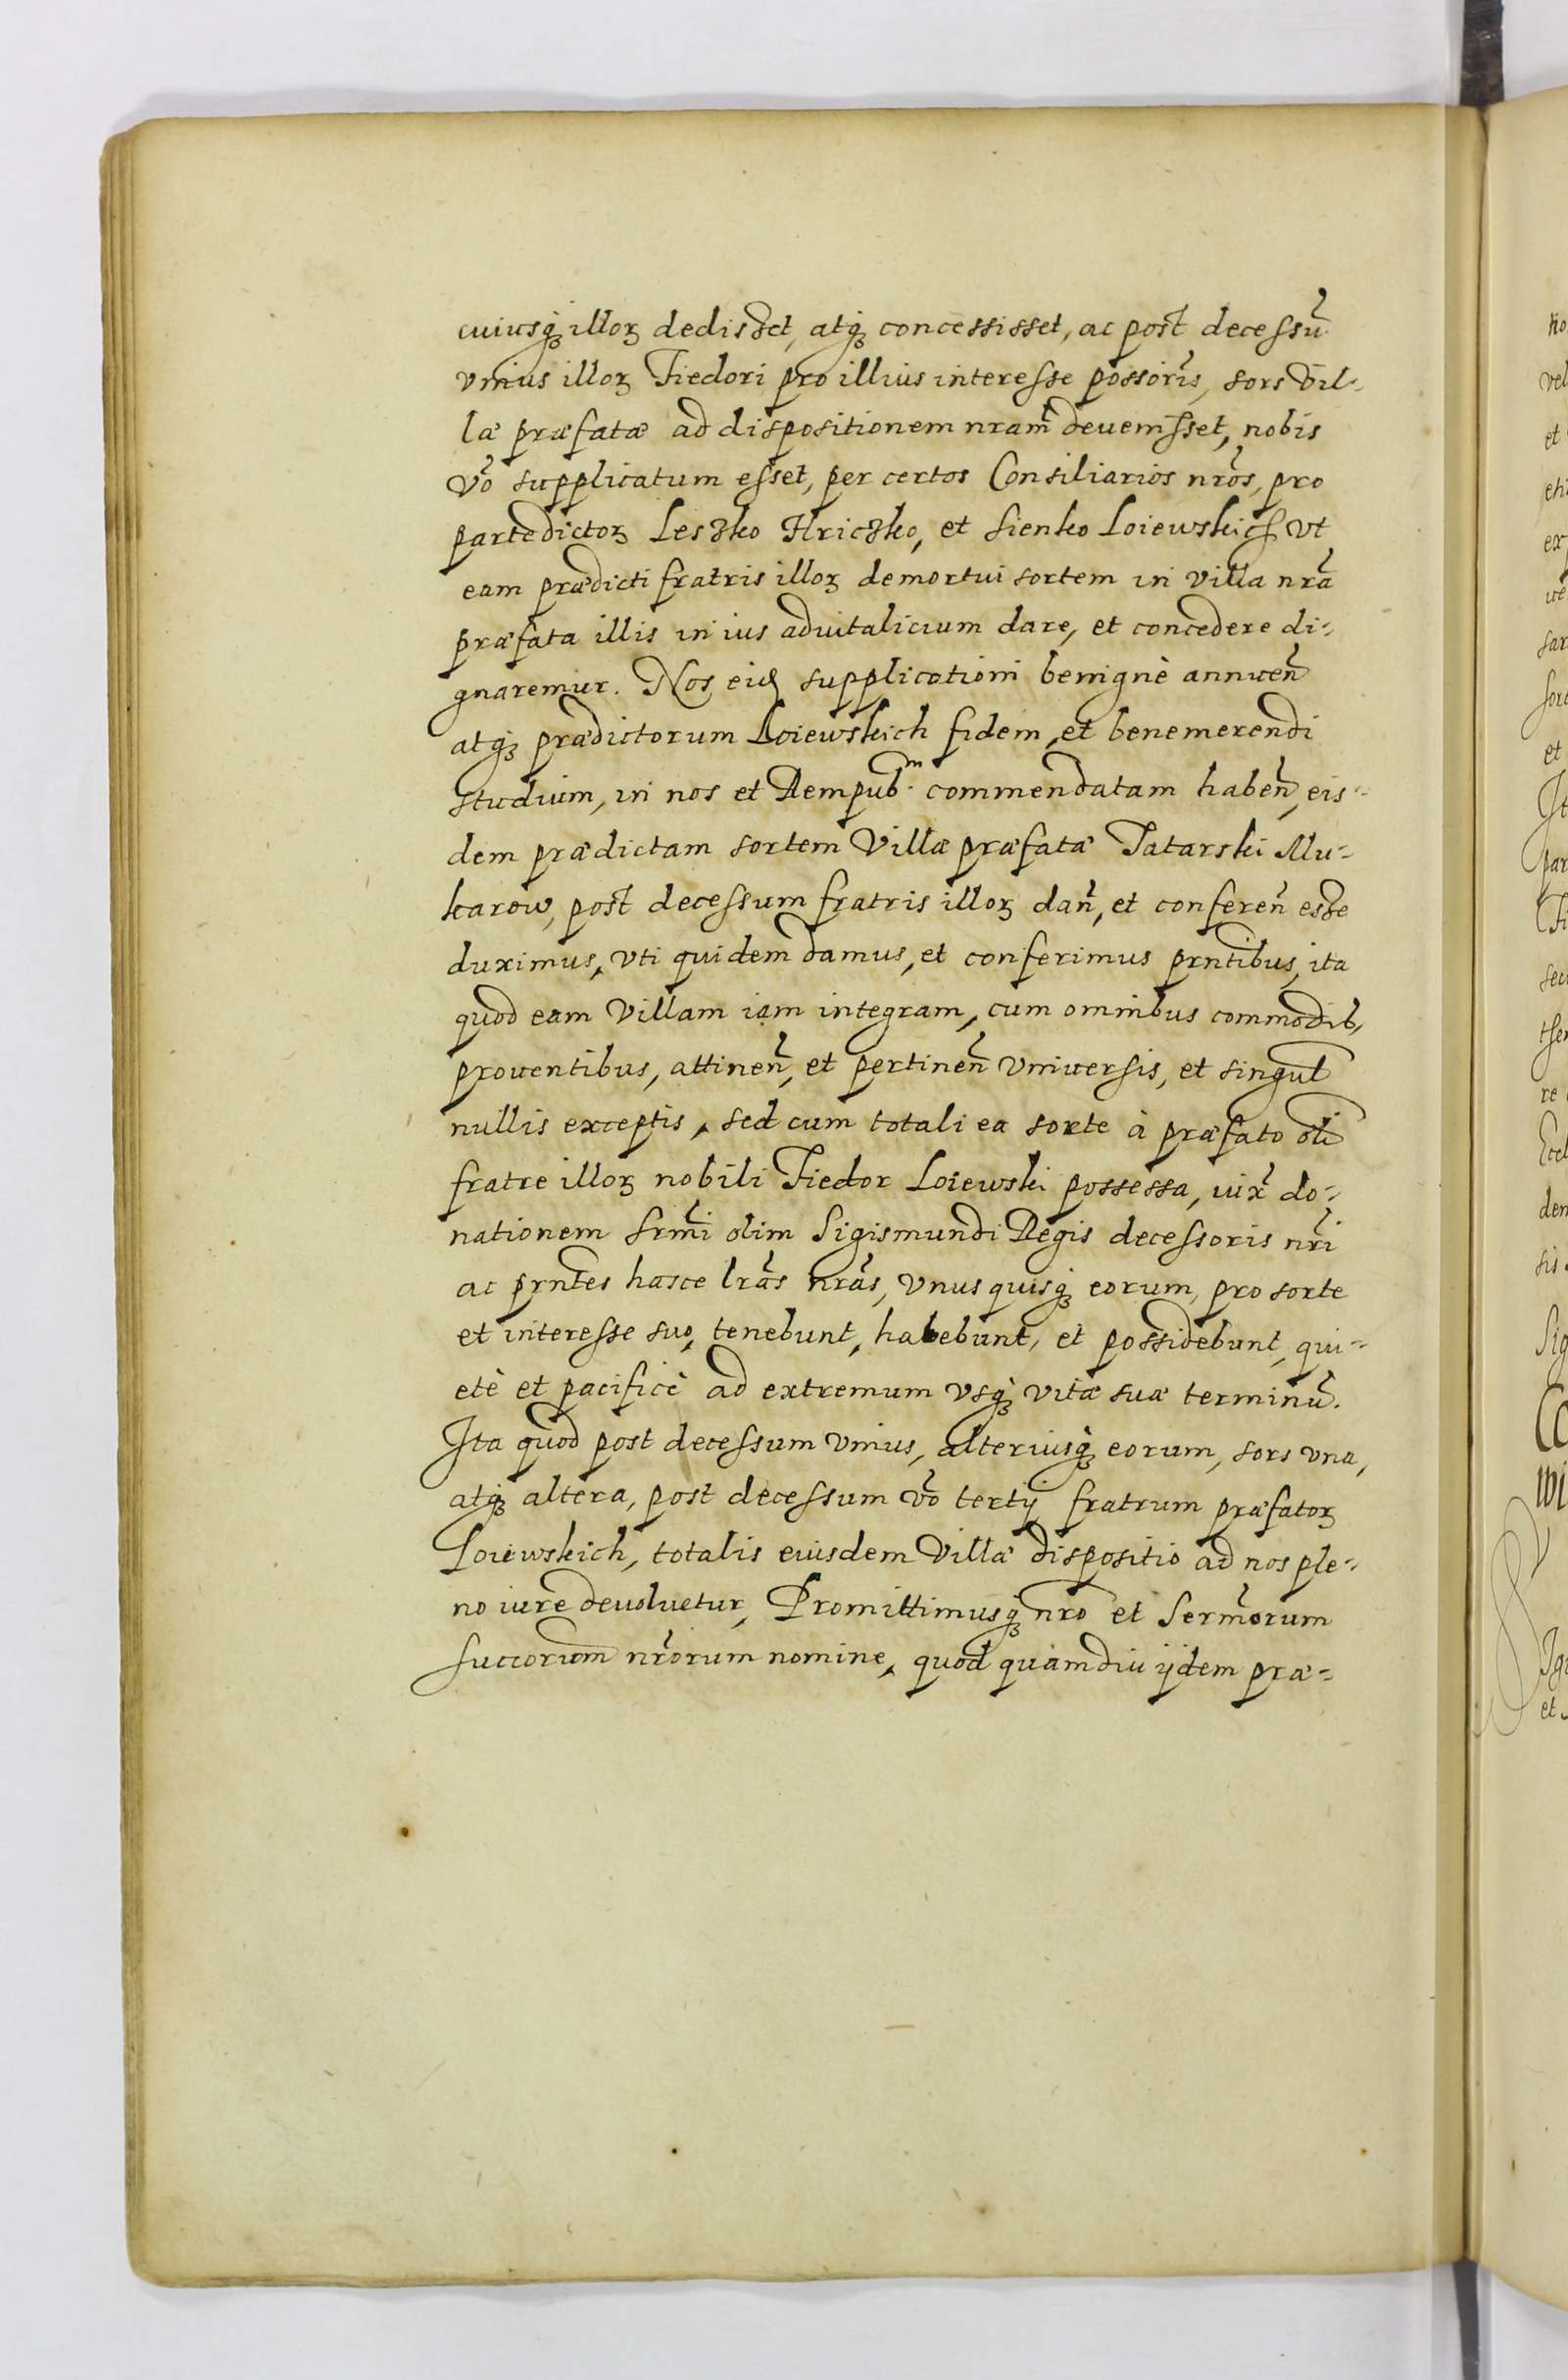 cuiusq; illoꝝ dedisset, atq; concessisset, ac post decessũ
vnius illoꝝ Fiedori pro illius interesse possoris̃, sors Vil-
læ præfatæ ad dispositionem nram̃ deuenisset, nobis
võ supplicatum esset, per certos Consiliarios nrõs, pro
parte dictoꝝ Leszko Hriczko, et Sienko Loiewskich vt
eam prædicti fratris illoꝝ demortui sortem in villa nrã
præfata illis in ius aduitalicium dare, et concedere di-
gnaremur. Nos eid supplicationi benignè annuen̄
atq; prædictorum Loiewskich fidem, et benemerendi
studium, in nos et Rempub.ᵐ commendatam haben̄, eis-
dem prædictam sortem Villæ præfatæ Tatarski Mu-
karow, post decessum fratris illoꝝ dan̄, et conferen̄ esse
duximus, vti quidem damus, et conferimus prñtibus, ita
quod eam Villam iam integram, cum omnibus commodib,
prouentibus, attinen̄, et pertinen̄ vniuersis, et singul̃
nullis exceptis, sed cum totali ea sorte à præfato oli͂
fratre illoꝝ nobili Fiedor Loiewski possessa, iux̃ do-
nationem Srmi͂ olim Sigismundi Regis decessoris nri͂
ac prñtes hasce lrãs nrãs, vnus quisq; eorum, pro sorte
et interesse suo, tenebunt, habebunt, et possidebunt, qui-
etè et pacificè ad extremum vsq; vitæ suæ terminũ.
Ita quod post decessum vnius, alteriusq; eorum, sors vna,
atq; altera, post decessum võ tertij fratrum præfatoꝝ
Loiewskich, totalis eiusdem Villæ dispositio ad nos ple-
no iure deuoluetur, Promittimusq; nrõ et Serm̃orum
succorũm nrõrum nomine, quod quàmdiu ijdem præ-